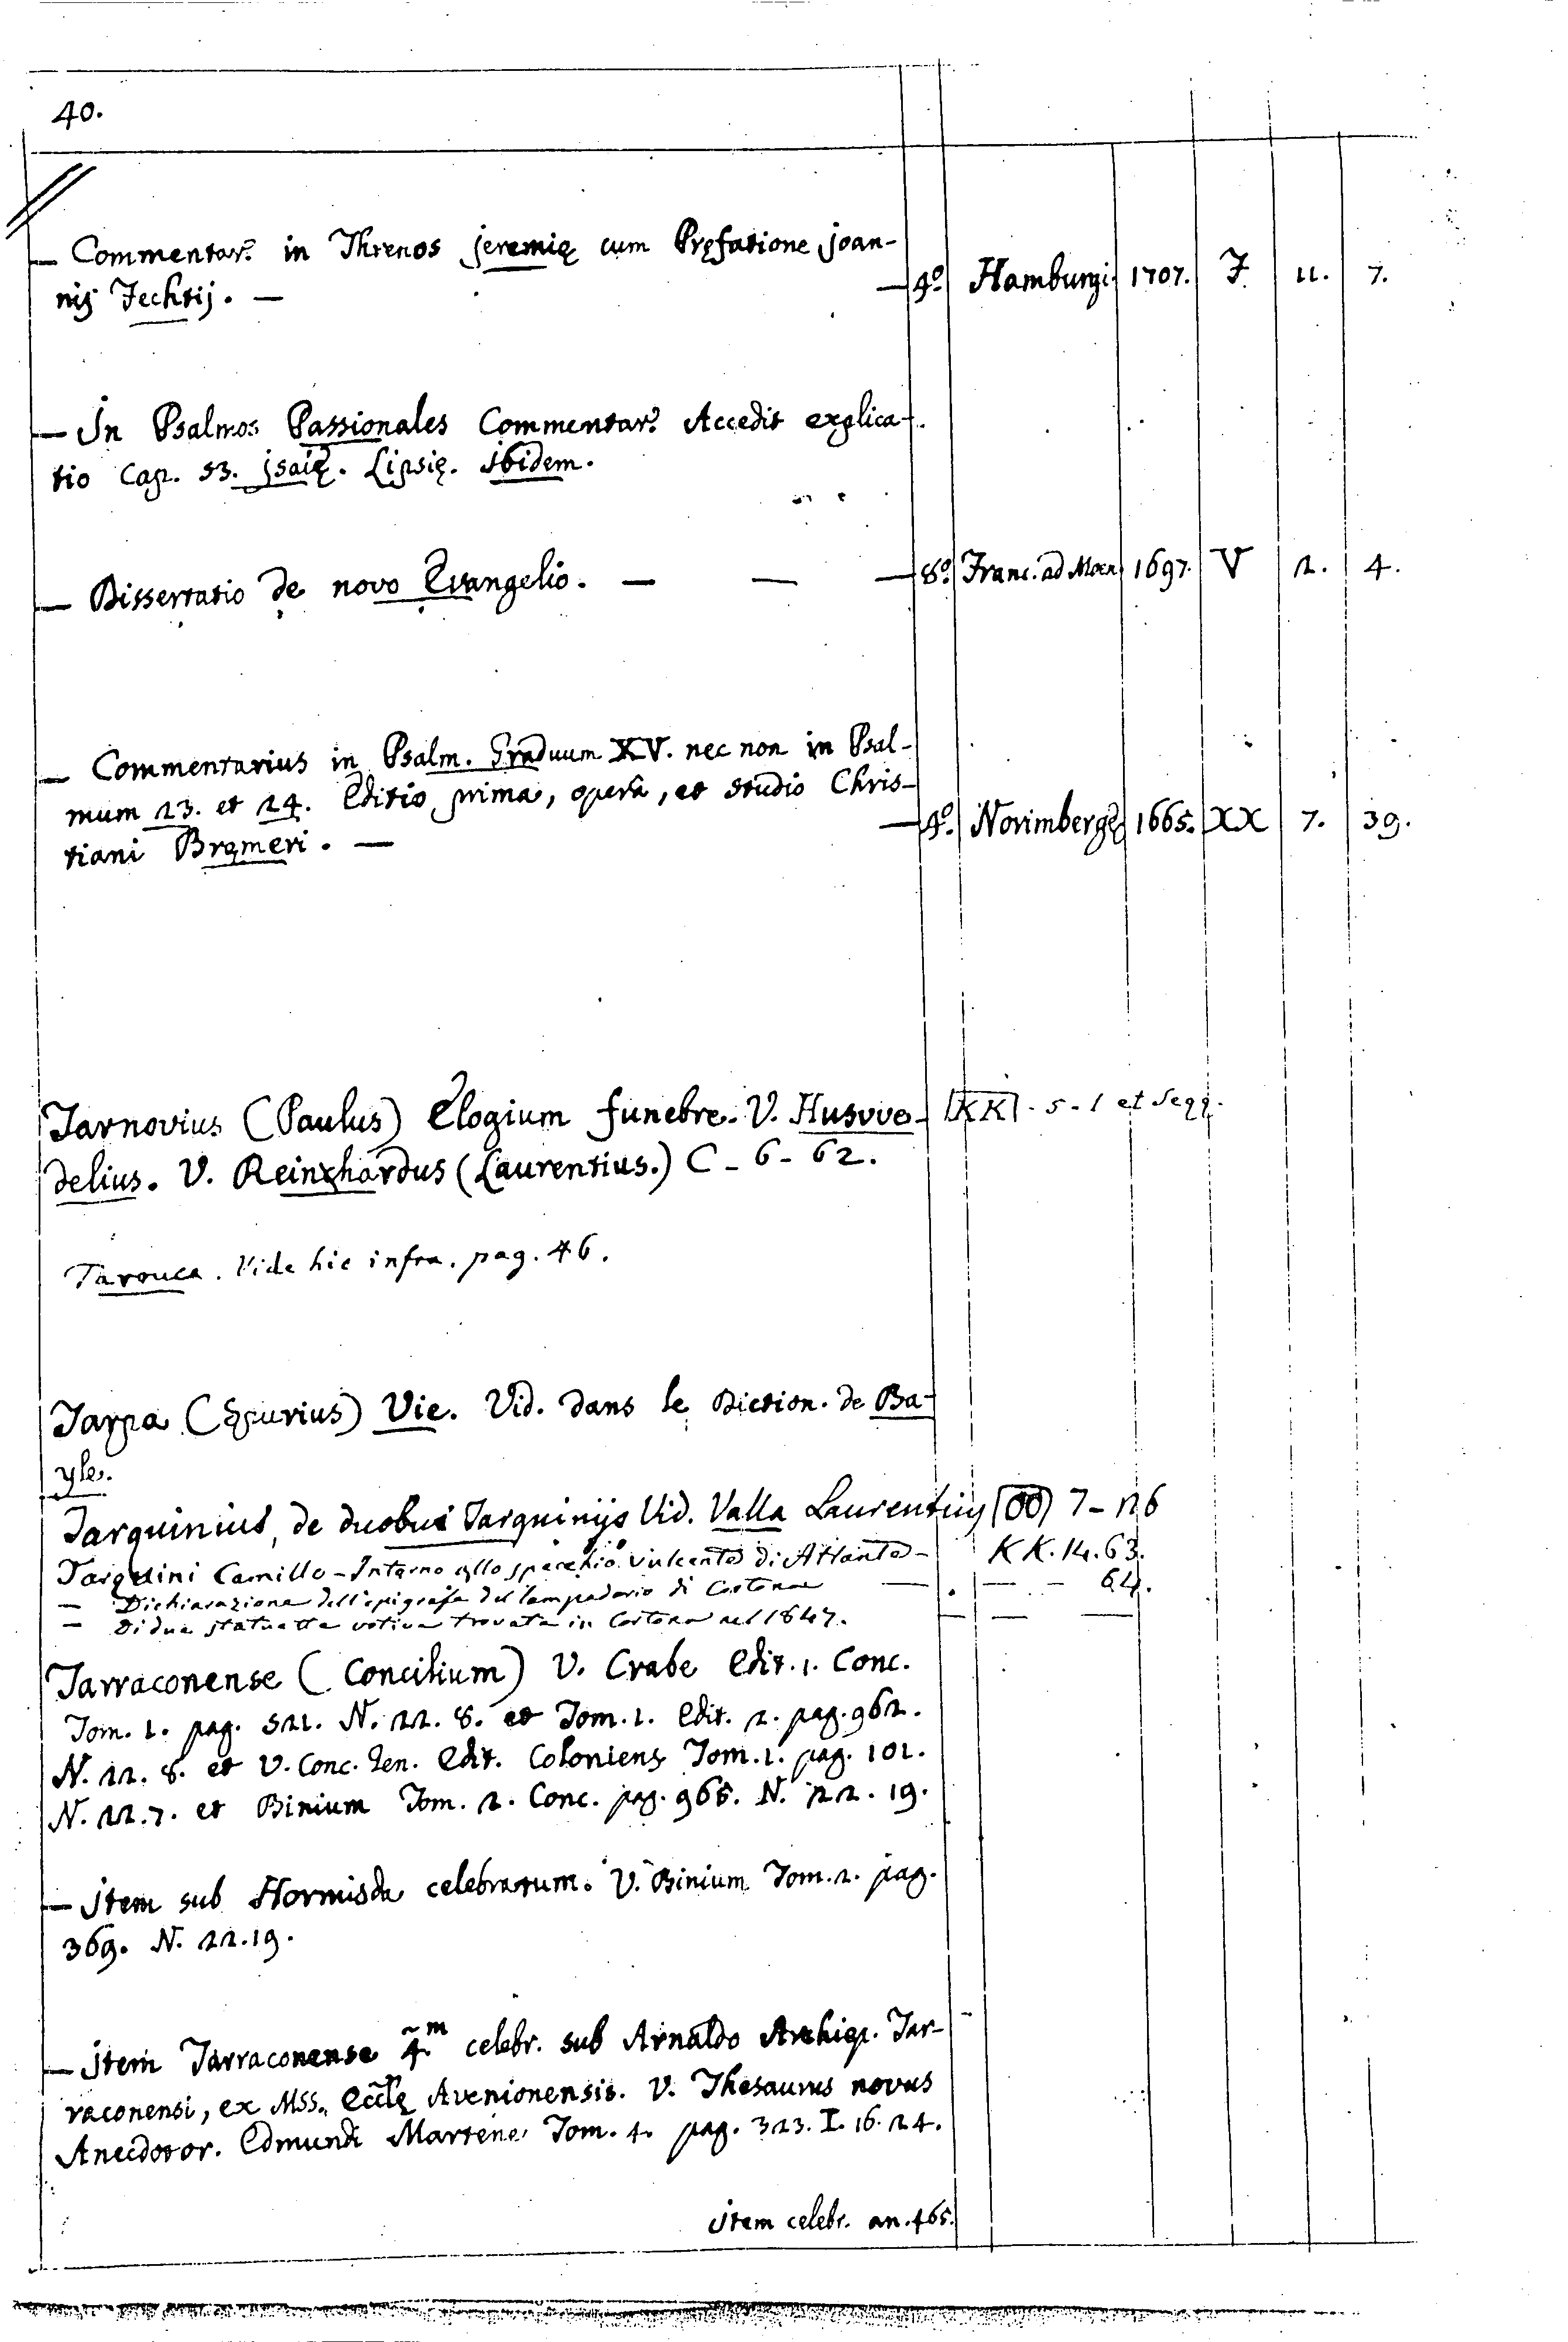 40.
— Commentar. in Threnos Jeremię cum Pręfatione Joan-
nis Fechtij. — — 4.º Hamburgi. 1707. F. 11. 7.
— In Psalmos Passionales Commentar. Accedit explica-
tio Cap. 53. Jsaię. Lipsię. Ibidem.
— Dissertatio de novo Evangelio. — — — 8.º Franc. ad Moen 1697. V 2. 4.
— Commentarius in Psalm. Graduum XV. nec non in Psal-
mum 23. et 24. Editio prima, operâ, et studio Chris-
tiani Bremeri. — — 4.º Norimbergę 1665. XX 7. 39.
Tarnovius (Paulus) Elogium funebre. V. Husvve- KK. 5-1 et seqq.
delius. V. Reinxhardus (Laurentius.) C-6-62.
Tarouca. Vide hic infra. pag. 46.
Tarpa (Spurius) Vie. Vid. dans le Diction. de Ba-
yle.
Tarquinius, de duobus Tarquinijs Vid. Valla Laurentius OO 7-126
Tarquini Camillo - Intorno allo specchio vulcente di Atlante - KK. 14. 63.
— Dichiarazione dell'epigrafe del lampadario di Cortona — — - 64.
— Di due statuette votive trovate in Cortona nel 1847. — — —
Tarraconense (Concilium) V. Crabe Edit. 1. Conc.
Tom. 1. pag. 521. N. 22. 8. et Tom. 1. Edit. 2. pag. 962.
N. 22. 8. et V. Conc. Gen. Edit. Coloniens Tom. 1. pag. 101.
N. 22. 7. et Binium Tom. 2. Conc. pag. 965. N. 22. 19.
— Item sub Hormisda celebratum. V. Binium Tom. 2. pag.
369. N. 22. 19.
— Item Tarraconense 4.m celebr. sub Arnaldo Archiep. Tar-
raconensi, ex MSS. Eccłę Avenionensis. V. Thesaurus novus
Anecdotor. Edmundi Martene Tom. 4. pag. 323. I. 16. 24.
Item celebr. an. 465.